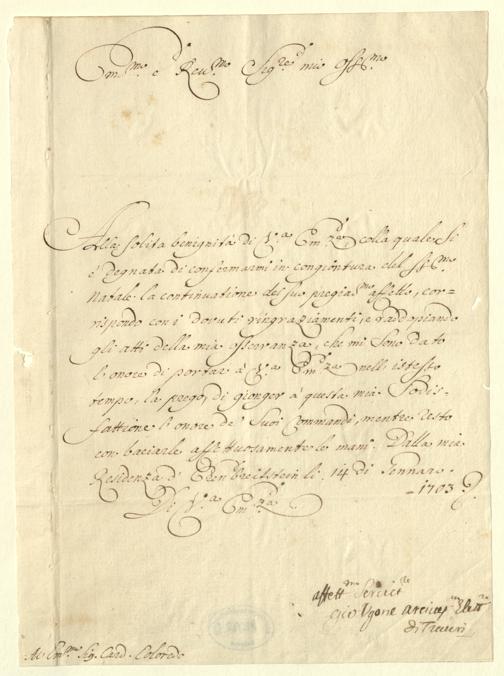 Em.mo e Reu.mo Sig.re mio Oss.mo
Alla solita benignità di V.a Em.za colla quale si
è degnata di confermarmi in congiontura del SS.mo
Natale la continuatione del suo pregia.mo affetto, cor=
rispondo con i dovuti ringraziamenti, e raddoppiando
gli atti della mia osservanza, che mi sono dato
l'onore di portar à V.a Em.za nell'istesso
tempo, la prego, di gionger à questa mia Sodis-
fattione l'onore de' Suoi Commandi, mentre resto
con baciarle affettuosamente le mani. Dalla mia
Residenza d'Erenbreitstein li 14 di Gennaro.
- 1703
Di V.a Em.za
affett.mo Servit.re
Gio Ugone Arciues.o Elett.re
di Treueri
Al Em.mo Sig. Card. Coloredo